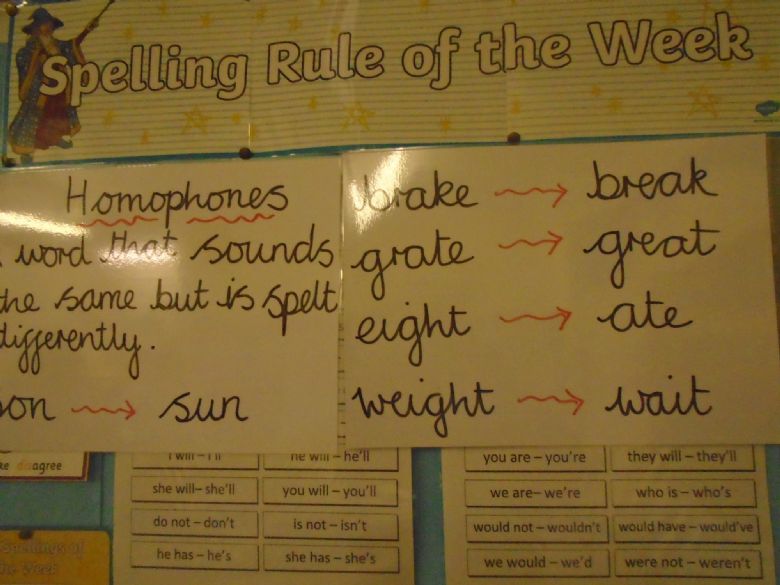 Spelling Rule of the Week
Homophones
word that sounds
the same but is spelt
differently.
son → sun
brake → break
grate → great
eight → ate
weight → wait
I will – I'll
he will – he'll
she will – she'll
you will – you'll
do not – don't
is not – isn't
he has – he's
she has – she's
you are – you're
they will – they'll
we are – we're
who is – who's
would not – wouldn't
would have – would've
we would – we'd
were not – weren't
disagree
Spellings of
the Week